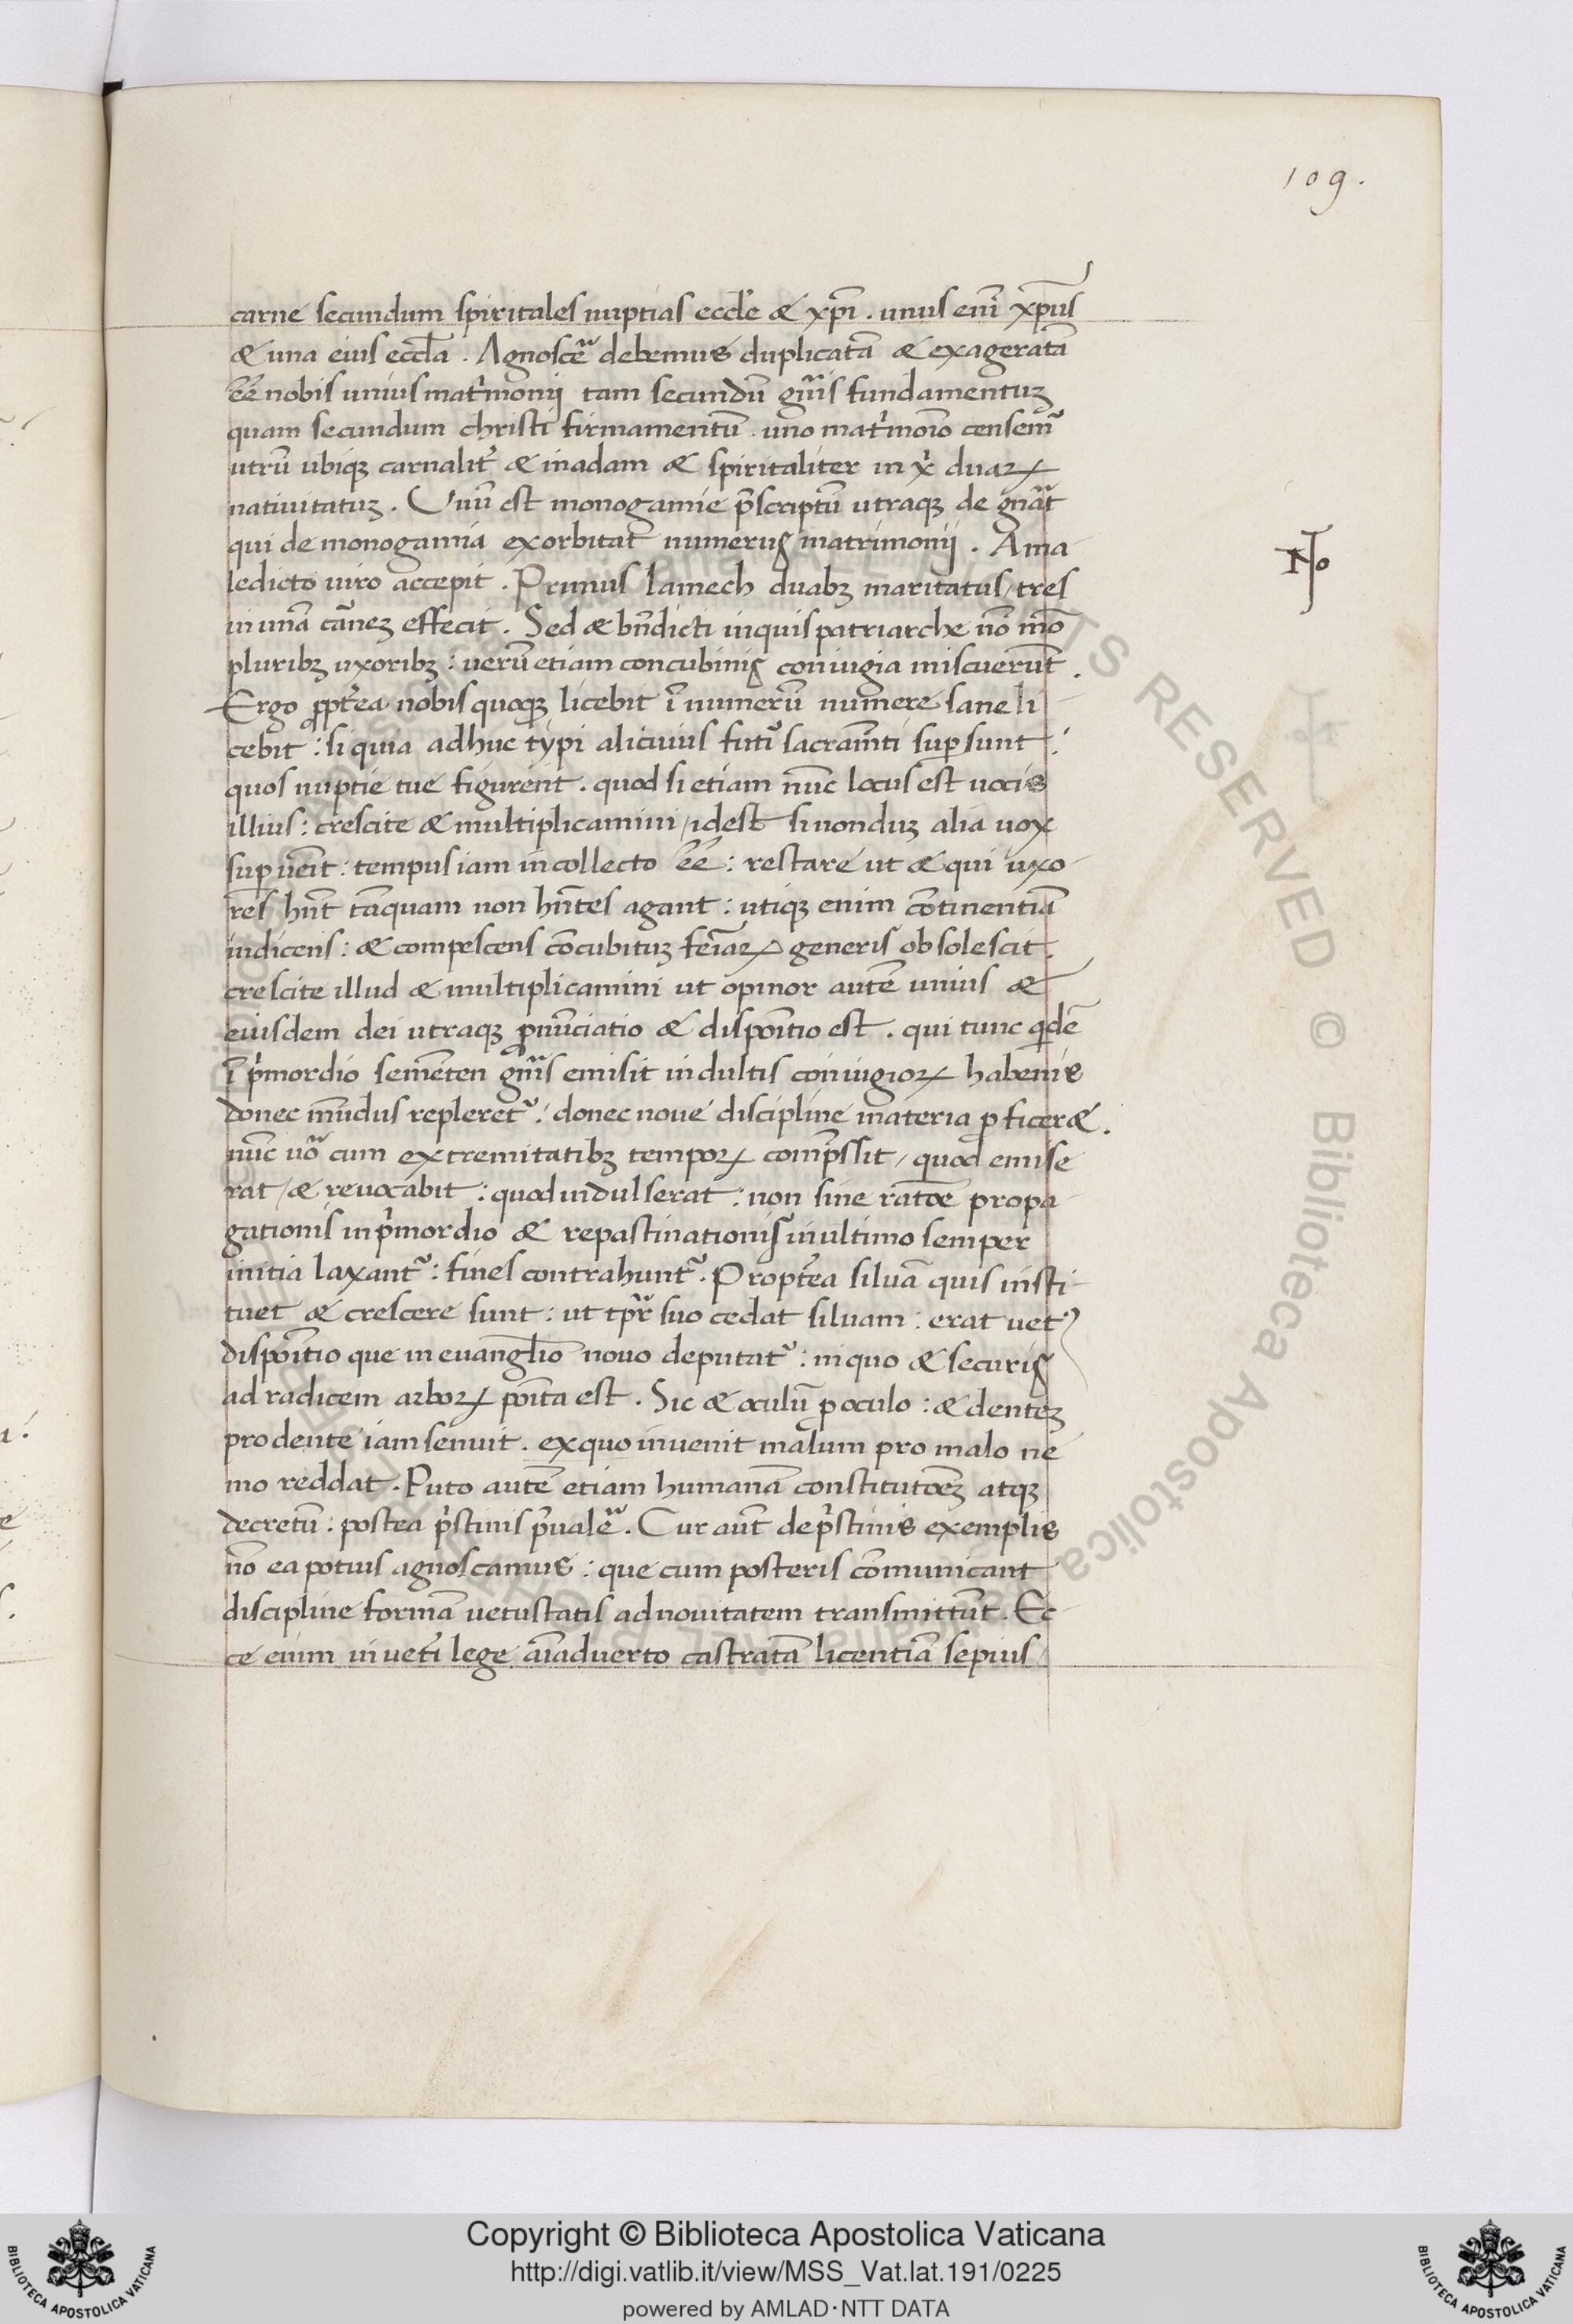 109.
carne secundum spiritales nuptias eccl'e & xp̄i . unus eni᷒ xp̄us
& una eius eccl̄a . Agnoscer̄ debemus duplicatā & exageratā
ēē nobis unius mat'monij tam secundū gn̄is fundamentuꝫ
quam secundum christi firmamentū . uno mat'monio censem᷑
utrū ubiqꝫ carnalit' & inadam & spiritaliter in x̄ duaꝝ
nativitatuꝫ . Unū est monogamie p̄scriptū utraqꝫ de gn̄at
qui de monogamia exorbitat numerus matrimonij . Ama
ledicto viro accepit . Primus lamech duabꝫ maritatus / tres
in unā cārneꝫ effecit . Sed & bn̄dicti inquis patriarche nō mō
pluribꝫ uxoribꝫ : verū etiam concubinis coniugia miscuerūt .
Ergo ꝓpt'ea nobis quoqꝫ licebit ī numerū numere sane li
cebit : si quia adhuc typi alicuius futur̄ sacram̄ti suꝑsunt :
quos nuptie tue figurent . quod si etiam nūc locus est vocis
illius : crescite & multiplicamini / idest si nonduꝫ alia vox
suꝑuēit : tempus iam in collecto ēē : restare ut & qui uxo
res hn̄t tāquam non hn̄tes agant : utiqꝫ enim cōtinentiā
indicens : & compescens cōcubituꝫ semīaꝝ generis obsolescit .
crescite illud & multiplicamini ut opinor autē unius &
eiusdem dei utraqꝫ ꝓnūciatio & dispōitio est . qui tunc qdē
ī p'mordio semēten gn̄is emisit indultis coniugioꝝ habenis
donec mūdus repleret᷑ : donec nove discipline materia ꝓficer& .
nūc uō cum extremitatibꝫ tempoꝝ comp̄ssit / quod emise
rat / & revocabit : quod indulserat : non sine ratōe propa
gationis in p'mordio & repastinationis in ultimo semper
initia laxant᷑ : fines contrahunt᷑ . Propt'ea silvā quis insti
tuet & crescere sunt : ut tp̄r suo cedat silvam : erat vet'
dispōitio que in evangl̄io novo deputat᷑ : in quo & securis
ad radicem arboꝝ pōita est . Sic & oculū ꝓ oculo : & denteꝫ
pro dente iam senuit . ex quo invenit malum pro malo ne
mo reddat . Puto autē etiam humanā constitutōeꝫ atqꝫ
decretū : postea p'stinis p̄valer̄ . Cur aūt de p'stinis exemplis
nō ea potius agnoscamus : que cum posteris cōmunicant
discipline formā vetustatis ad novitatem transmittūt . Ec
ce enim in vet'i lege aīadverto castratā licentiā sepius /
No
Copyright © Biblioteca Apostolica Vaticana
http://digi.vatlib.it/view/MSS_Vat.lat.191/0225
powered by AMLAD·NTT DATA